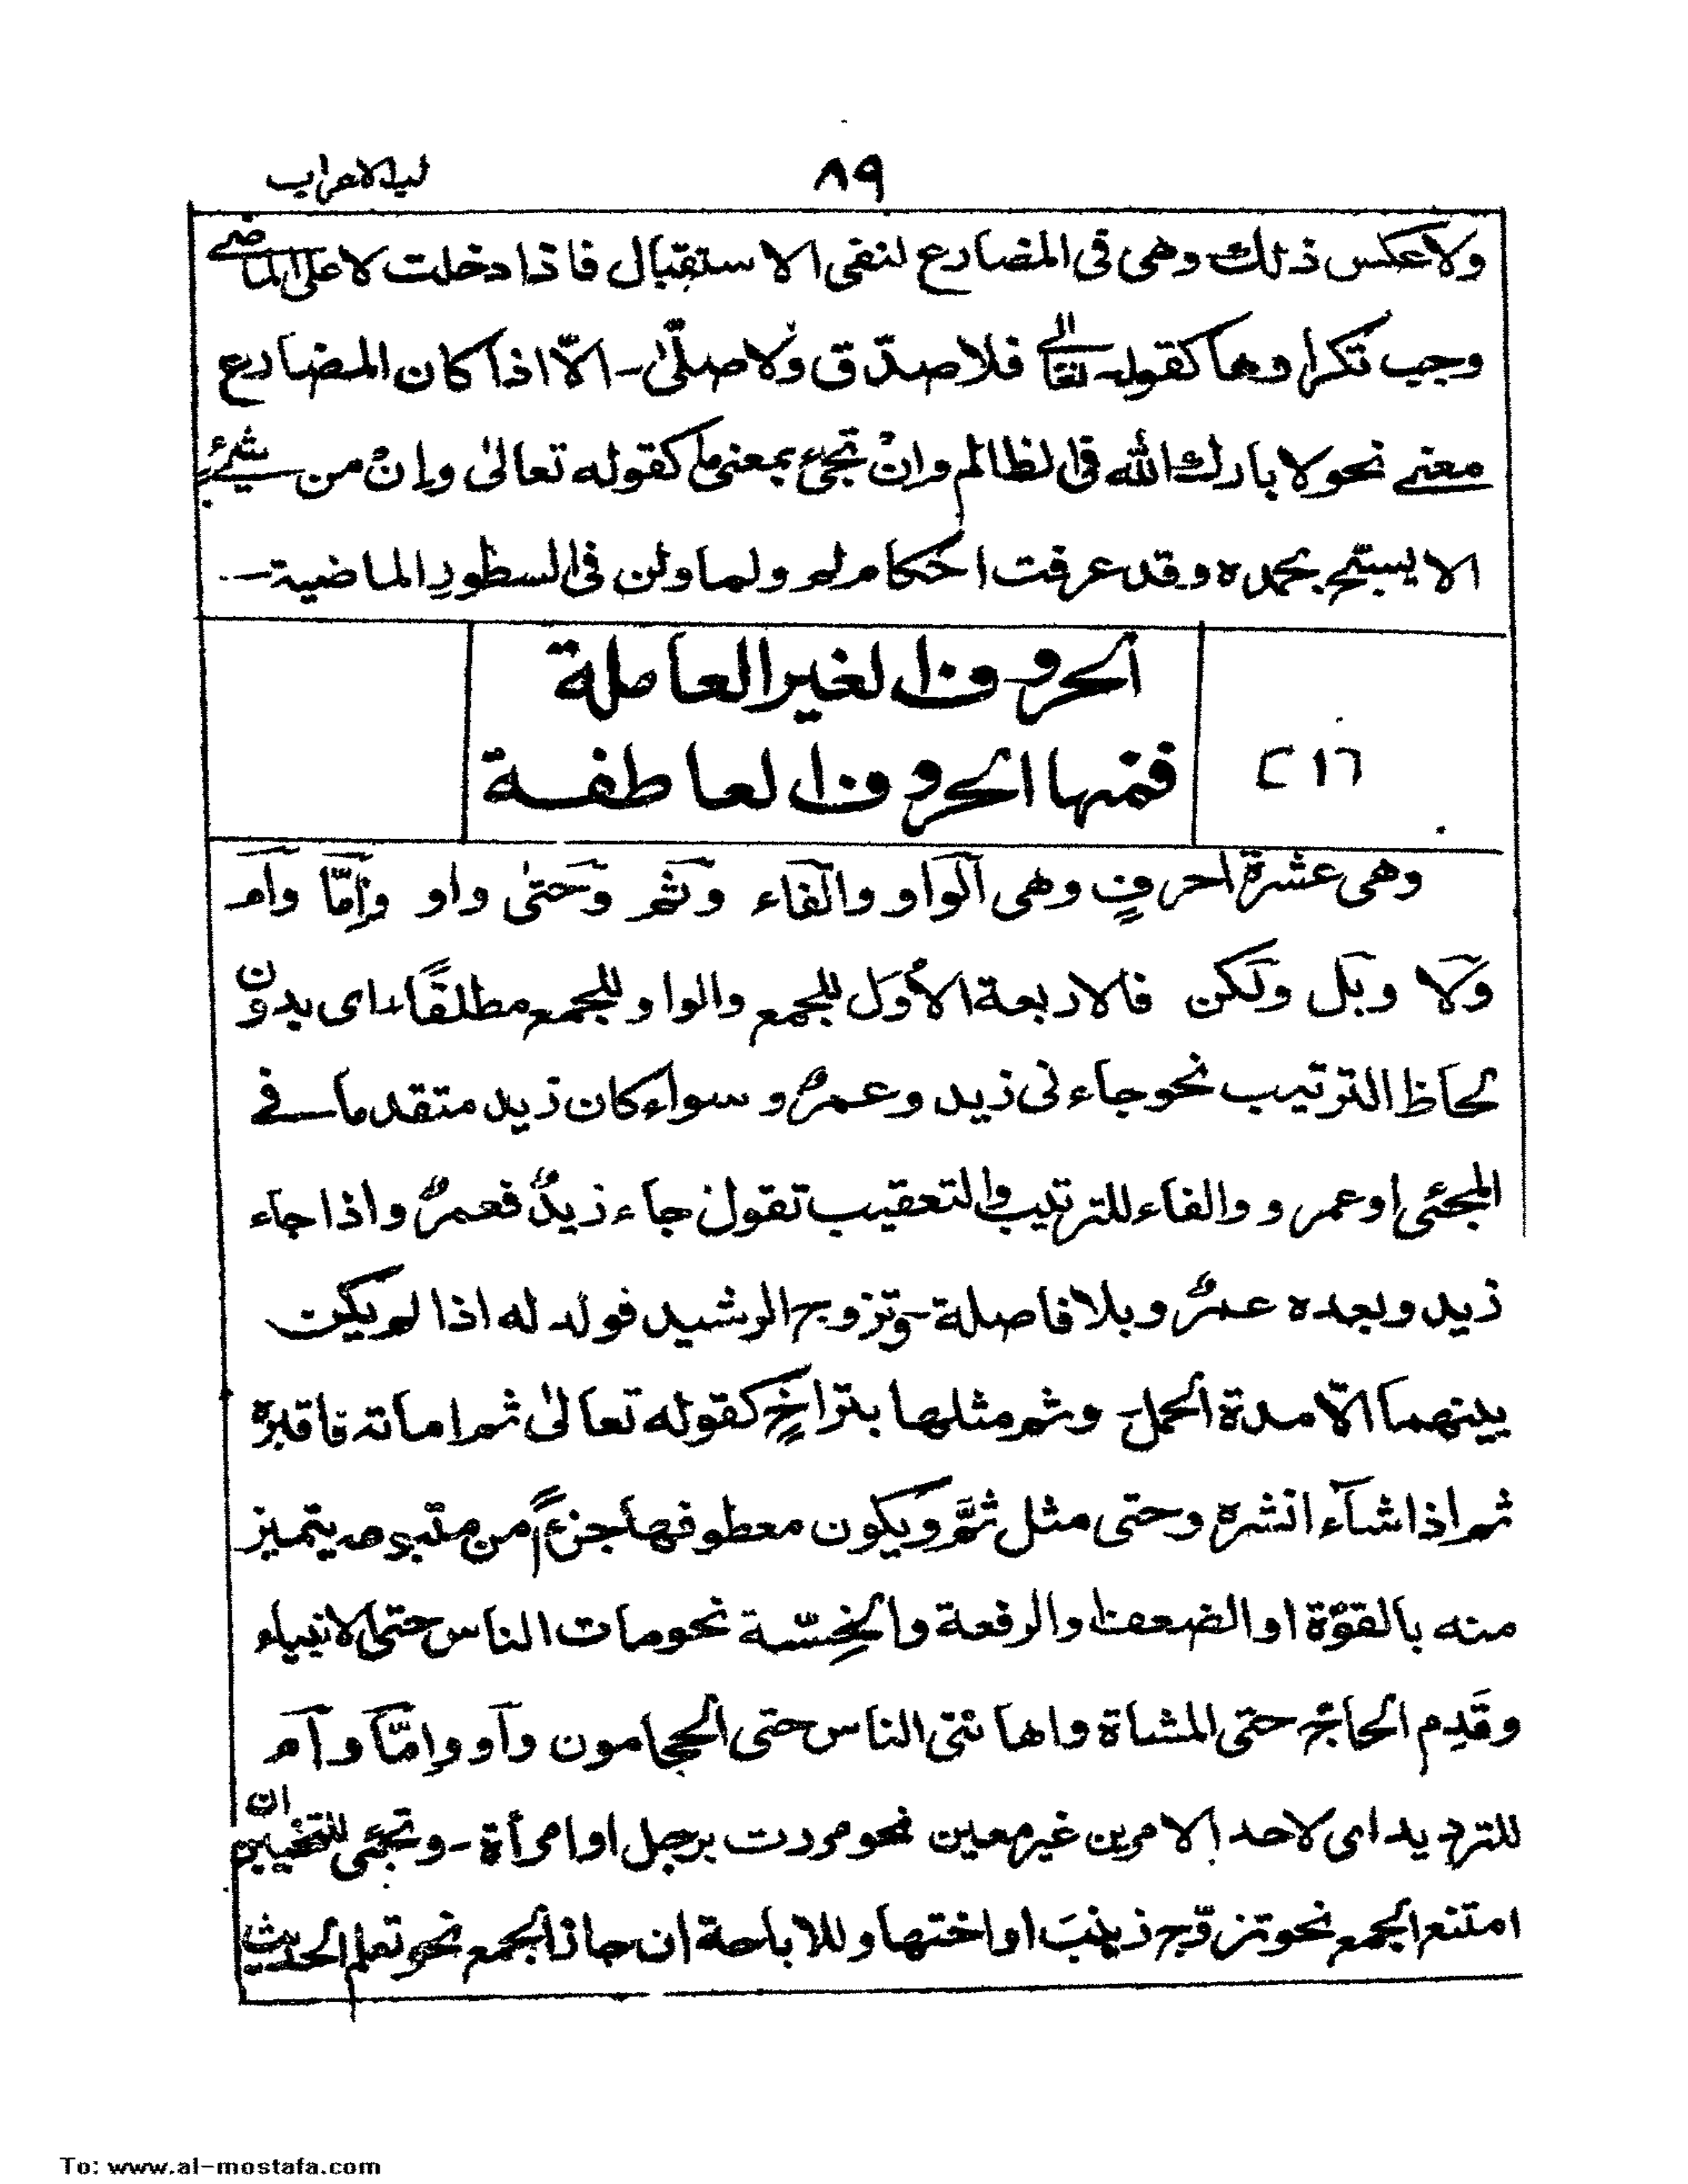 ٨٩
لب الاعراب
ولا عكس ذلك وهى فى المضارع لنفى الاستقبال فاذا دخلت لا على الماضے
وجب تكرارها كقوله تعالى فلا صدّق ولا صلّىٰ - الّا اذا كان المضارع
معنے نحو لا بارك الله فى الظالم وانْ تجئ بمعنى ما كقوله تعالىٰ وإنْ من شيئٍ
الا يسبّح بحمده وقد عرفت احكام لم ولما ولن فى السطورِ الماضية -
الحروف الغير العاملة
فمنها الحروف العاطفة
٢١٦
وهى عشرة احرفٍ وهى الواو والفاء وثم وحتىٰ واو وإمّا وام
ولا وبل ولكن فالاربعة الأُوَل للجمع والواو للجمع مطلقًا اى بدون
لحاظ الترتيب نحو جاءنى زيد وعمرٌو سواء كان زيد متقدما فے
المجئى او عمرو والفاء للترتيب والتعقيب تقول جاء زيدٌ فعمرٌو اذا جاء
زيد وبعده عمرٌو بلا فاصلة - وتزوج الرشيد فولد له اذا لم يكن
بينهما الّا مدة الحمل - وثم مثلها بتراخٍ كقوله تعالىٰ ثم اماته فاقبره
ثم اذا شآء انشره وحتى مثل ثمَّ ويكون معطوفها جزءً من متبوعه يتميز
منه بالقوّة او الضعف او الرفعة والخِسّة نحو مات الناس حتى الانبياء
وقَدِم الحائج حتى المشاة واهانتى الناس حتى الحجامون وأو وإمّا وأم
للترديد اى لاحد الامرين غير معين نحو مررت برجل او امرأة - وتجئى للتخيير ان
امتنع الجمع نحو تزوّج زينبَ او اختها وللاباحة ان جاز الجمع نحو تعلم الحديث
To: www.al-mostafa.com